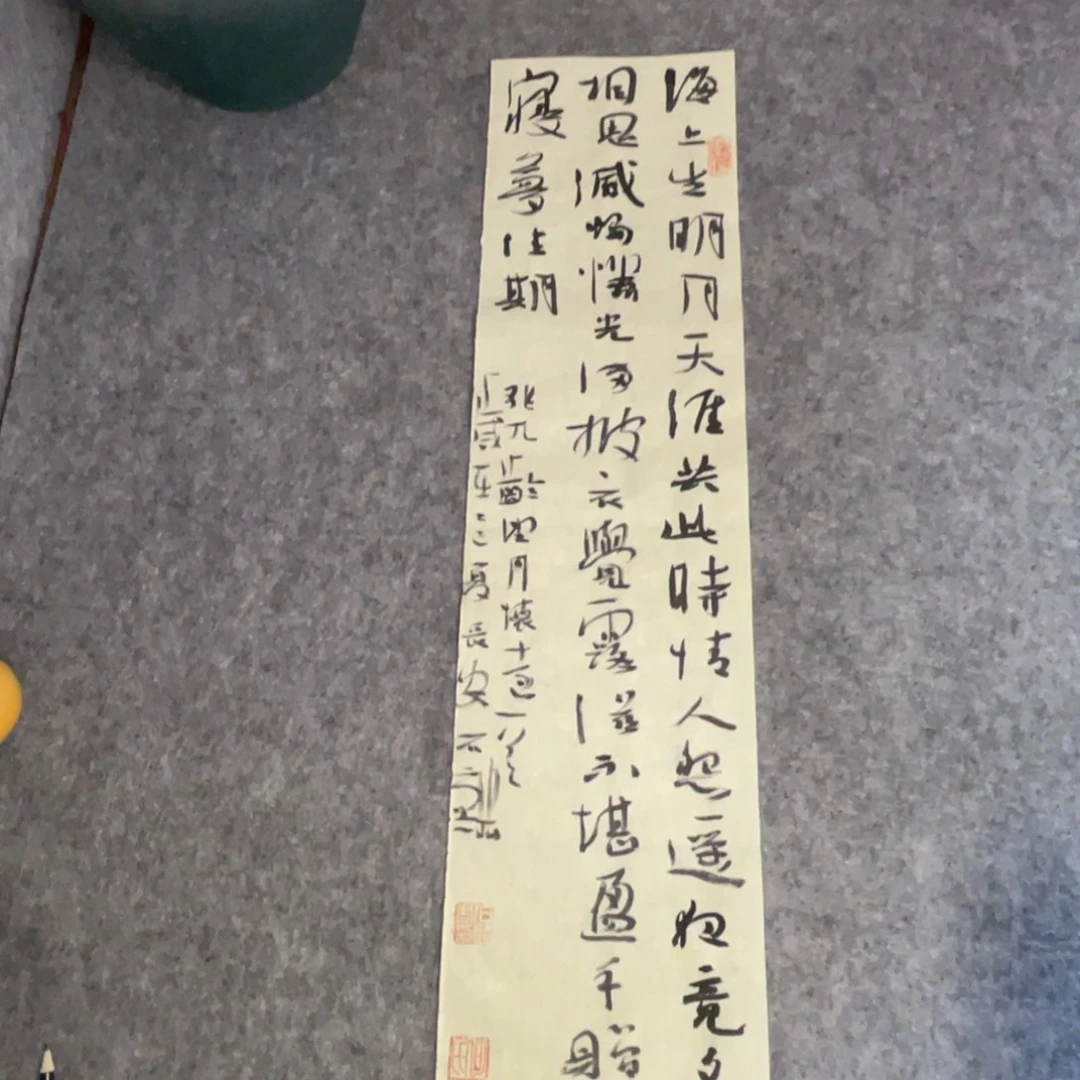 海上生明月天涯共此時情人怨遥夜竟夕
相思滅燭憐光滿披衣覺露滋不堪盈手贈
寢夢佳期
張九齡望月懷
長安